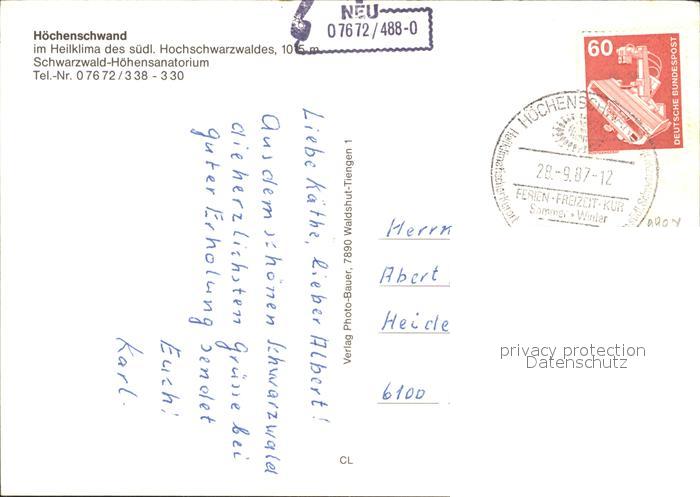 Höchenschwand
im Heilklima des südl. Hochschwarzwaldes, 1015 m
Schwarzwald-Höhensanatorium
Tel.-Nr. 0 76 72 / 3 38 - 3 30
NEU
07672/488-0
60
DEUTSCHE BUNDESPOST
HÖCHENSCHWAND
28.-9.87-12
FERIEN·FREIZEIT·KUR
Sommer + Winter
Liebe Käthe, lieber Albert!
Aus dem schönen Schwarzwald
die herzlichsten Grüsse bei
guter Erholung sendet
Euch!
Karl.
Verlag Photo-Bauer, 7890 Waldshut-Tiengen 1
CL
Herrn
Abert
Heide
6100
privacy protection
Datenschutz